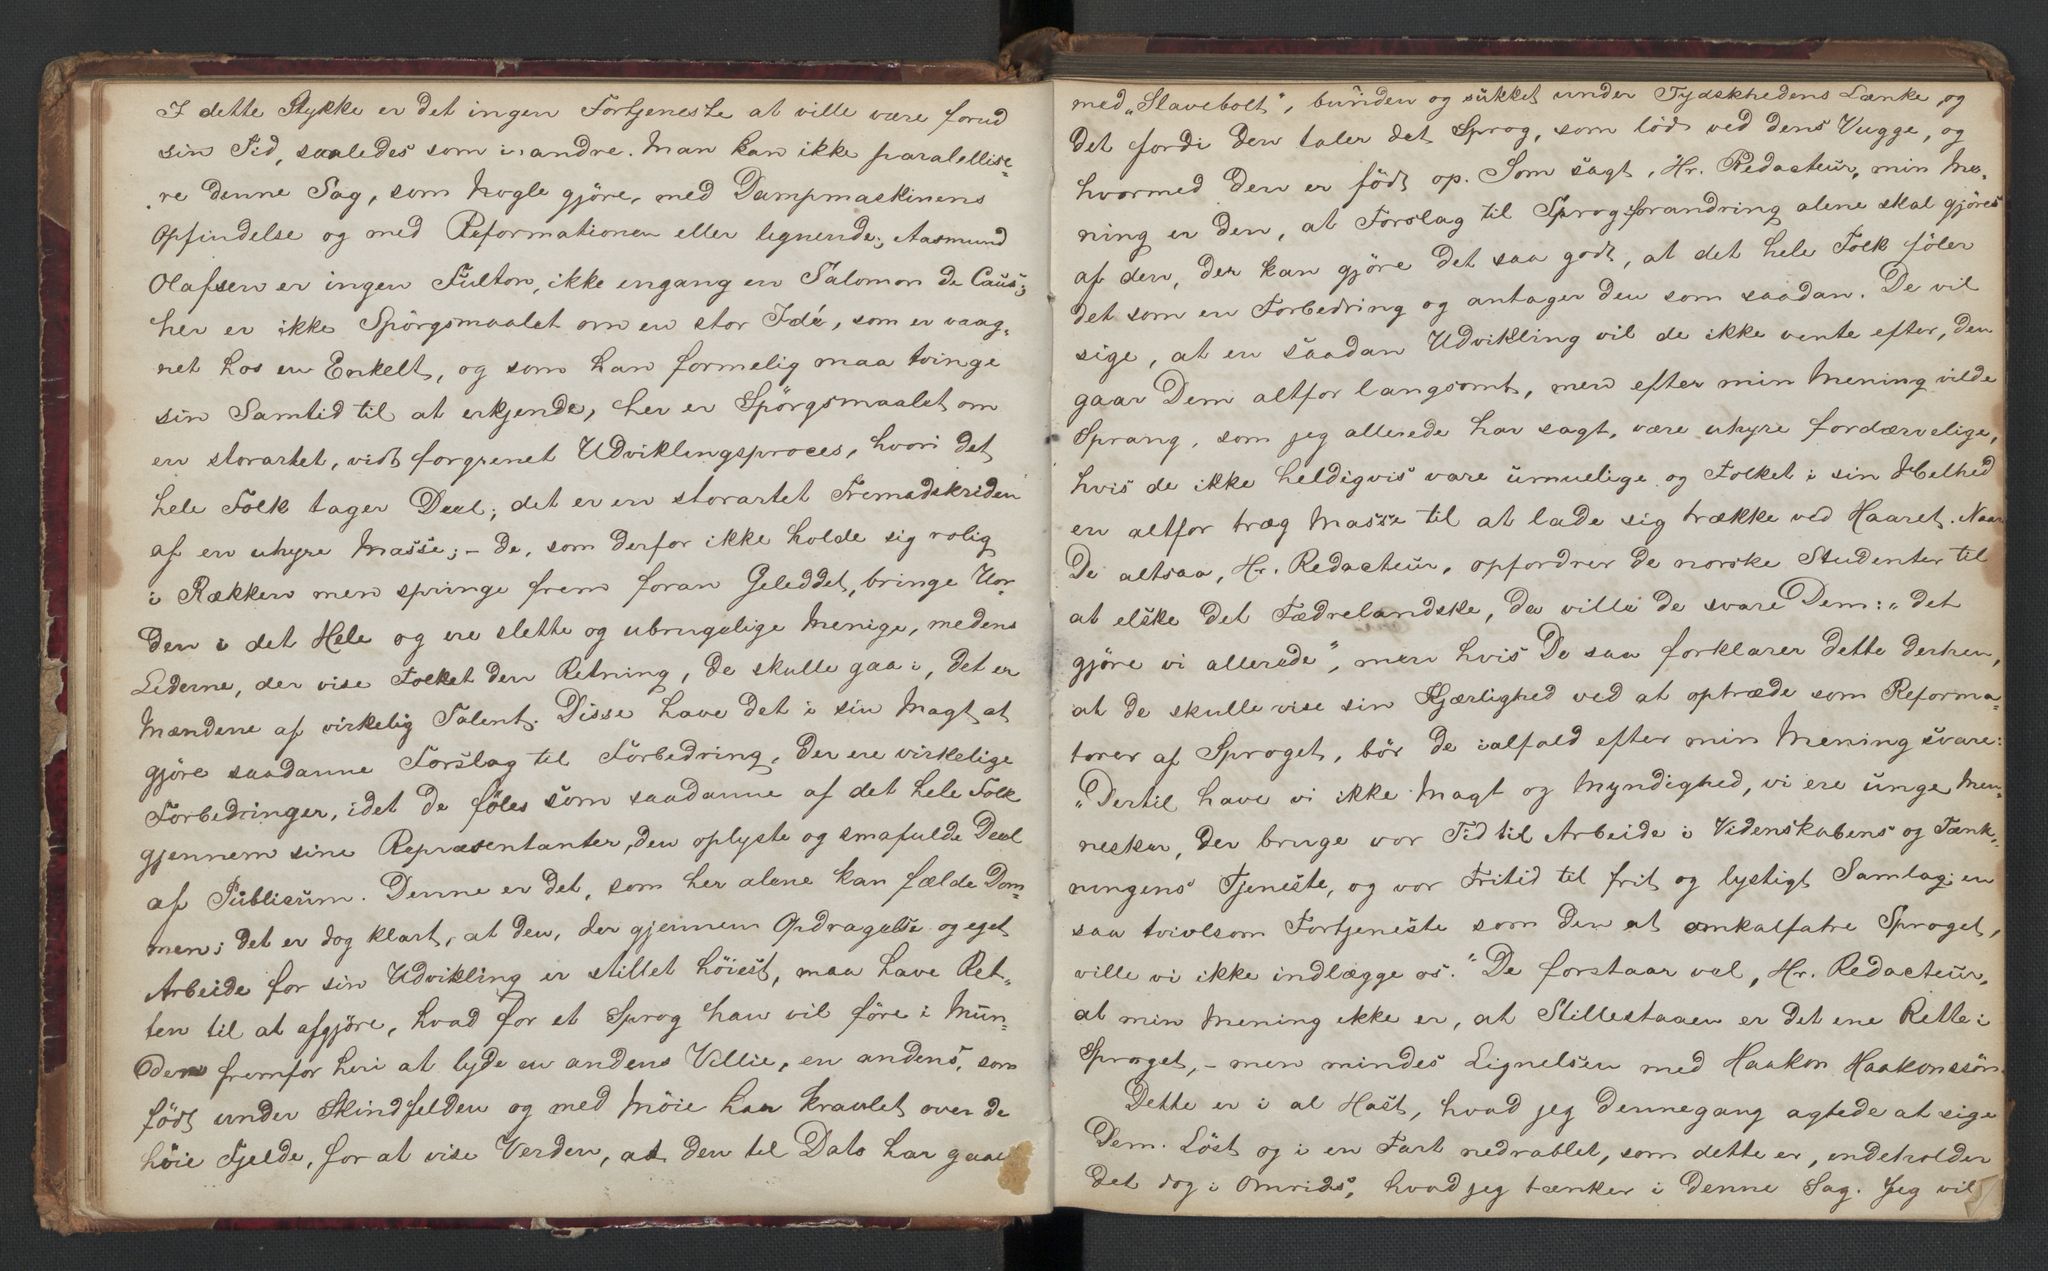 I dette Stykke er det ingen Fortjeneste at ville være forud
sin Tid, saaledes som i andre. Man kan ikke paralellise-
re denne Sag, som Nogle gjöre, med Dampmaskinens
Opfindelse og med Reformationen eller lignende; Aasmund
Olafsen er ingen Fulton, ikke engang en Salomon de Caus;
her er ikke Spörgsmaalet om en stor Idé, som er vaag-
net hos en Enkelt, og som han formelig maa tvinge
sin Samtid til at erkjende, her er Spörgsmaalet om
en storartet, vidt forgrenet Udviklingsproces, hvori det
hele Folk tager Deel; det er en storartet Fremadskriden
af en uhyre Masse; – de, som derfor ikke holde sig rolig
i Rækken men springe frem foran Geleddet, bringe Uor-
den i det Hele og ere slette og ubrugelige Menige, medens
Lederne, der vise Folket den Retning, de skulle gaa i, det er
Mændene af virkelig Talent. Disse have det i sin Magt at
gjöre saadanne Forslag til Forbedring, der ere virkelige
Forbedringer, idet de föles som saadanne af det hele Folk
gjennem sine Repræsentanter, den oplyste og smafulde Deel
af Publicum. Denne er det, som her alene kan fælde Dom-
men; det er dog klart, at den, der gjennem Opdragelse og eget
Arbeide for sin Udvikling er stillet höiest, maa have Ret-
ten til at afgjöre, hvad for et Sprog han vil före i Mun-
den fremfor heri at lyde en andens Villie, en andens, som
födt under Skindfelden og med Möie har kravlet over de
höie Fjelde, for at vise Verden, at den til Dato har gaaet
med "Slavebolt", bunden og sukket under Tydskhedens Lænke, og
det fordi den taler det Sprog, som löd ved dens Vugge, og
hvormed den er födt op. Som sagt, Hr. Redacteur, min Me-
ning er den, at Forslag til Sprogforandring alene skal gjöres
af den, der kan gjöre det saa godt, at det hele Folk föler
det som en Forbedring og antager den som saadan. De vil
sige, at en saadan Udvikling vil de ikke vente efter, den
gaar Dem altfor langsomt, men efter min Mening vilde
Sprang, som jeg allerede har sagt, være uhyre fordærvelige,
hvis de ikke heldigvis vare umuelige og Folket i sin Helhed
en altfor træg Masse til at lade sig trække ved Haaret. Naar
De altsaa, Hr. Redacteur, opfordrer de norske Studenter til
at elske det Fædrelandske, da ville de svare Dem: "det
gjöre vi allerede", men hvis De saa forklarer dette derhen,
at de skulle vise sin Kjærlighed ved at optræde som Reforma-
torer af Sproget, bör de ialfald efter min Mening svare:
"Dertil have vi ikke Magt og Myndighed, vi ere unge Men-
nesker, der bruge vor Tid til Arbeide i Videnskabens og Tænk-
ningens Tjeneste, og vor Fritid til frit og lystigt Samlag; en
saa tvivlsom Fortjeneste som den at omkalfatre Sproget,
ville vi ikke indlægge os." De forstaar vel, Hr. Redacteur,
at min Mening ikke er, at Stillestaaen er det ene Rette i
Sproget, – men mindes Lignelsen med Haakon Haakonssön.
Dette er i al Hast, hvad jeg dennegang agtede at sige
Dem. Löst og i en Fart nedrablet, som dette er, indeholder
det dog i Omrids, hvad jeg tænker i denne Sag. Jeg vil